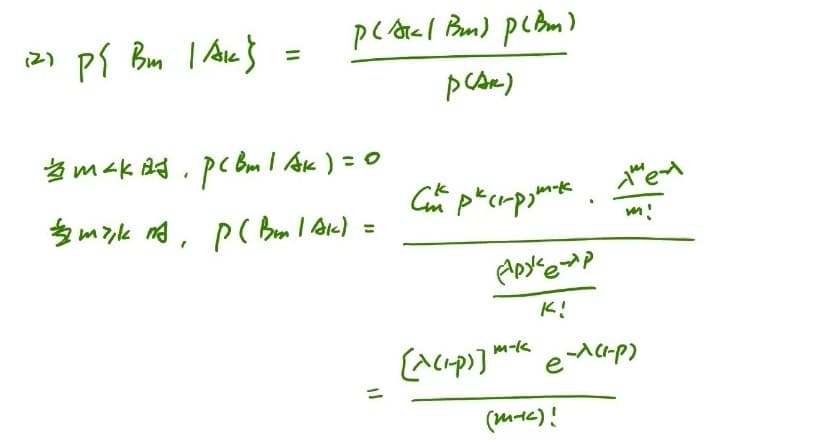 (2) P{ Bm | Ak } = P(Ak | Bm) P(Bm) / P(Ak)
当 m<k 时, P(Bm | Ak) = 0
当 m≥k 时, P(Bm | Ak) = C_m^k p^k (1-p)^{m-k} · λ^m e^{-λ} / m! / (λp)^k e^{-λp} / k!
= [λ(1-p)]^{m-k} e^{-λ(1-p)} / (m-k)!